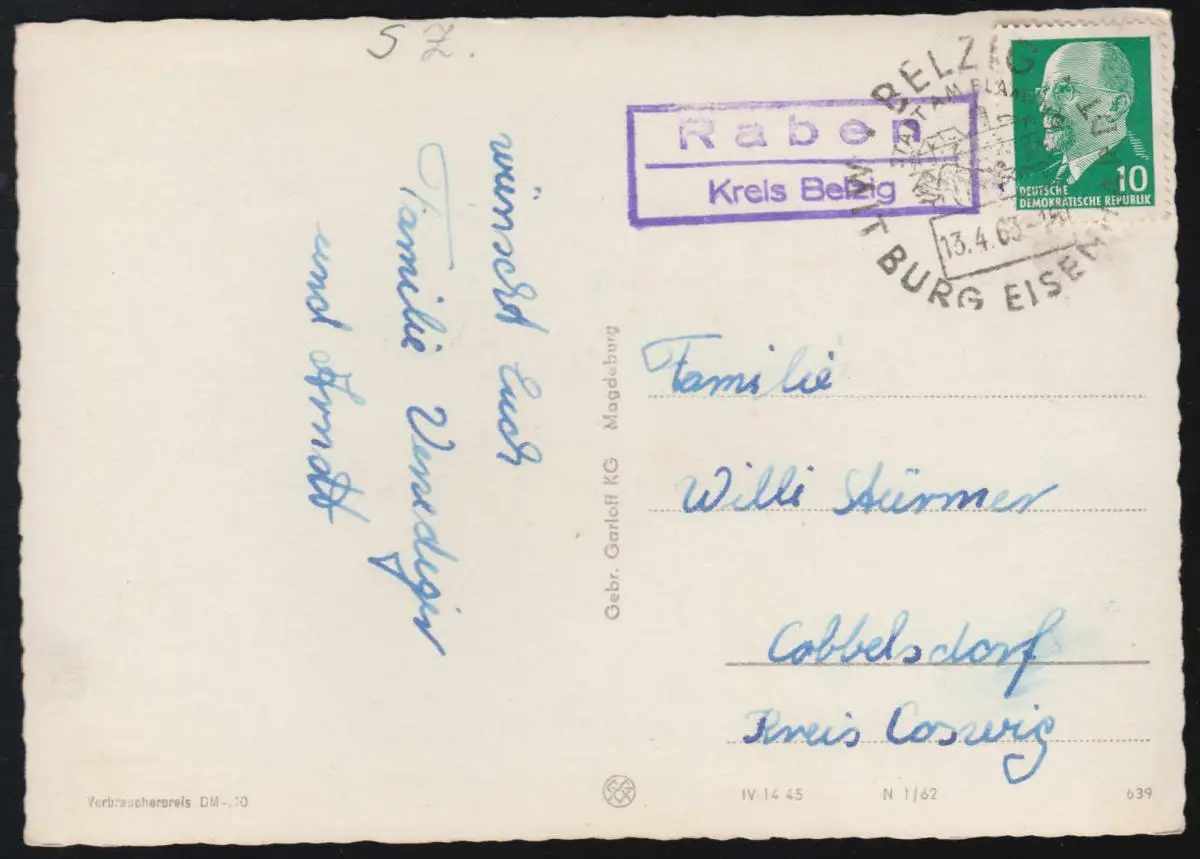 wünscht Euch
Familie Venediger
und Arndt
Raben
Kreis Belzig
BELZIG
STADT AM FLÄMING
MIT BURG EISENHARDT
13.4.63
DEUTSCHE
DEMOKRATISCHE REPUBLIK
10
Familie
Willi Stürmer
Cobbelsdorf
Kreis Coswig
Gebr. Garloff KG Magdeburg
Verbraucherpreis DM -,10
IV-14-45 N 1/62 639